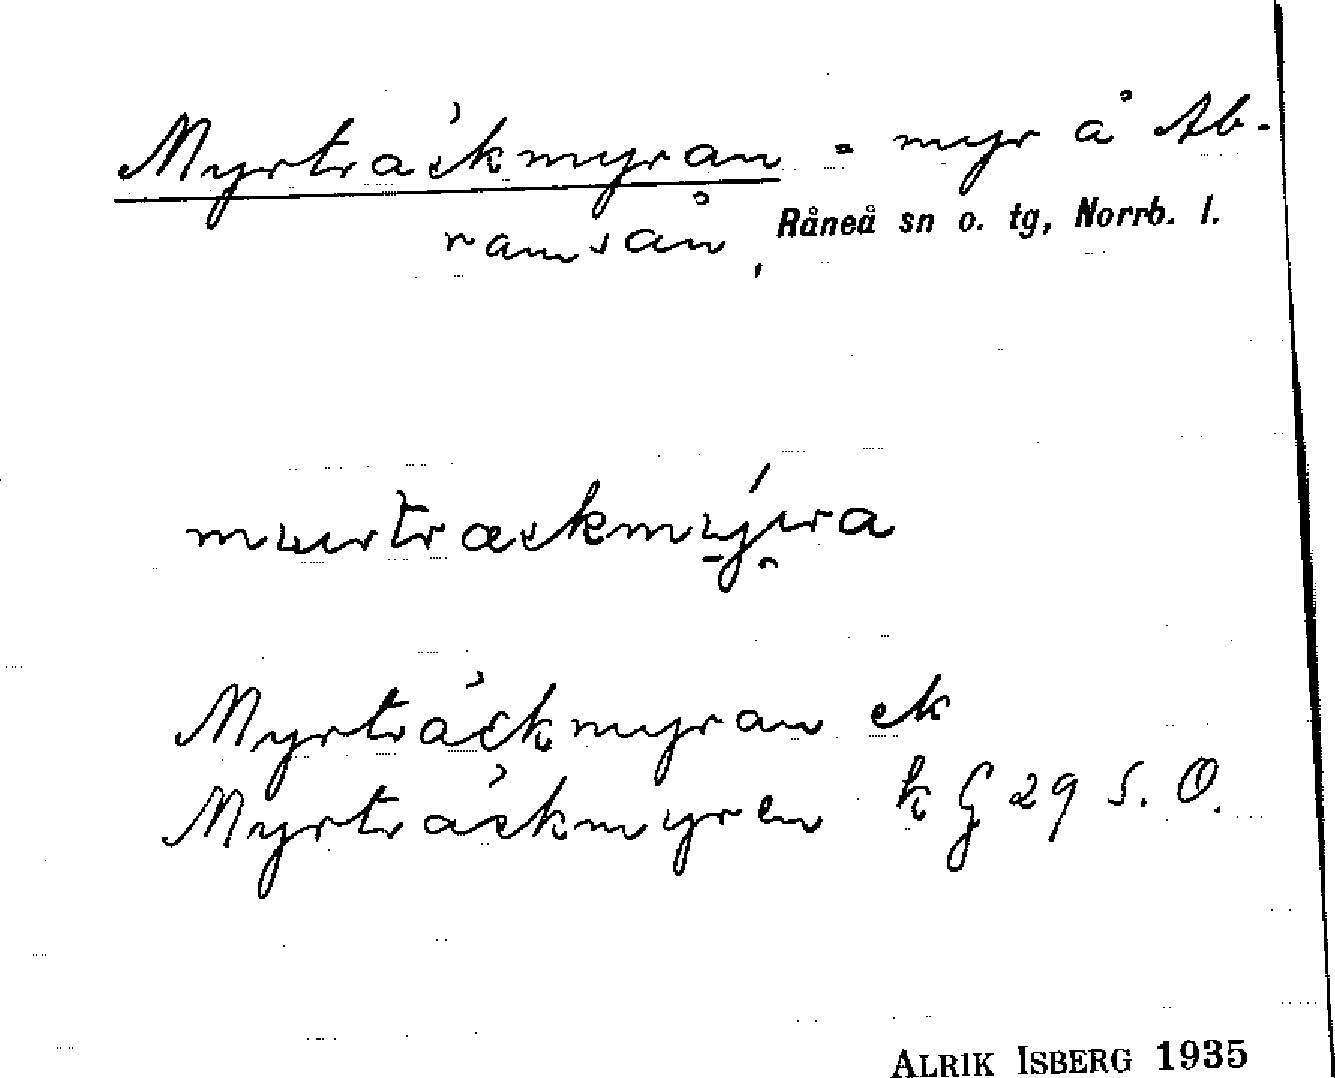 Myrträckmyran = myr å Ab-
ramsån, Råneå sn o. tg, Norrb. l.
Myrträckmyran ek
Myrträckmyren k G 29 S. O.
ALRIK ISBERG 1935